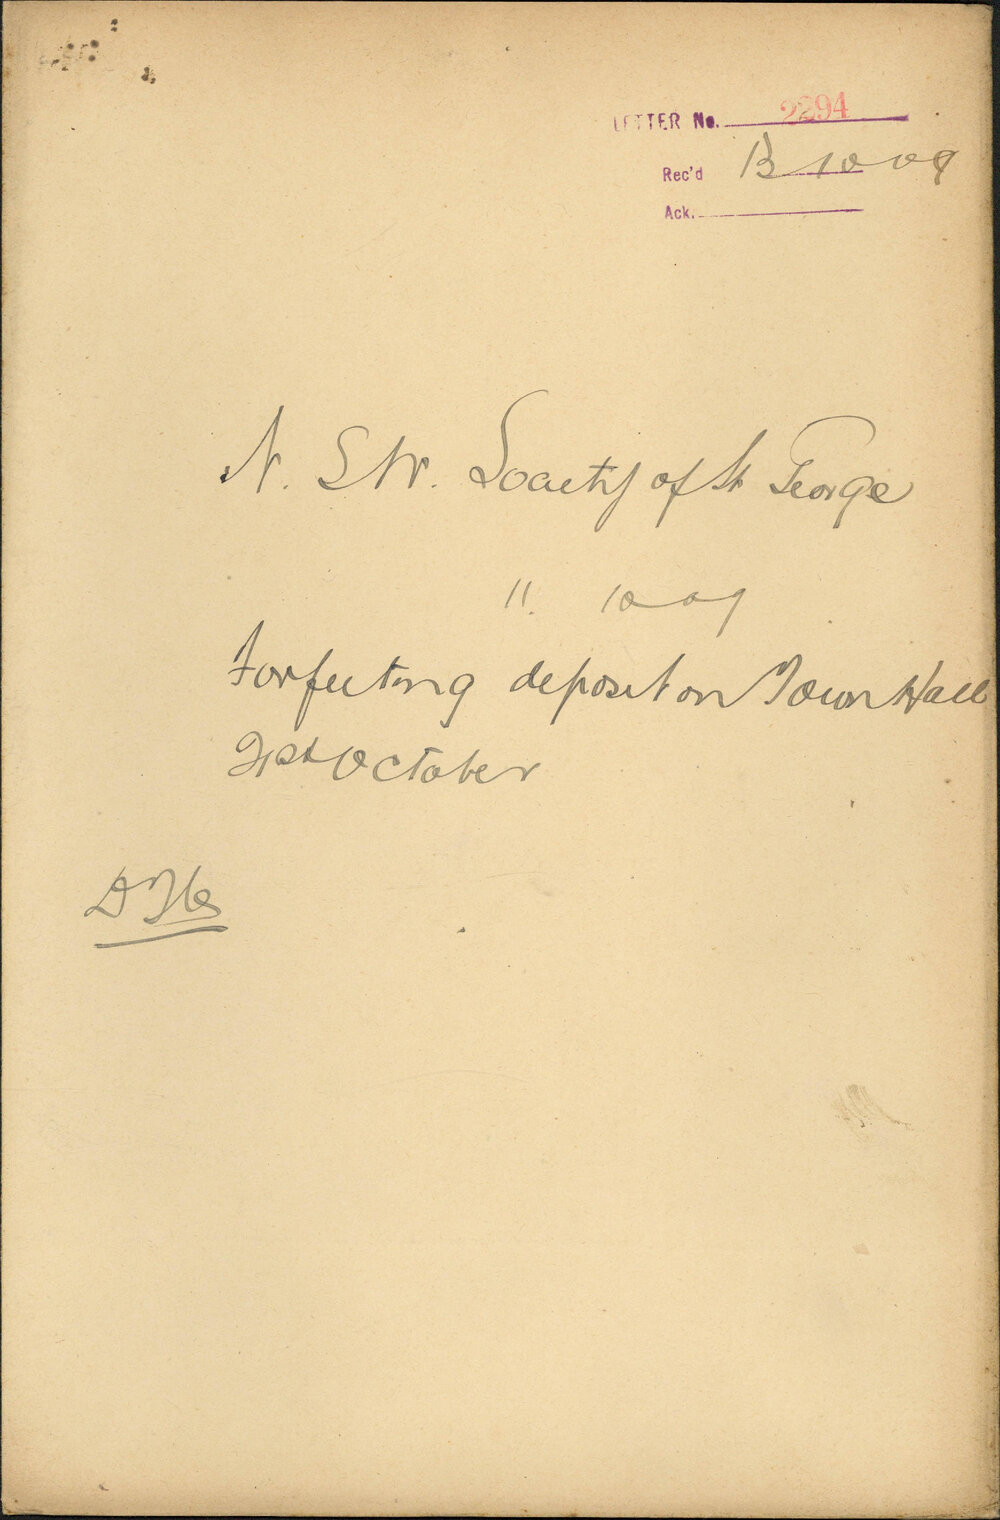 LETTER No. 2294
Rec'd 13 10 09
Ack.
N. S. W. Society of St George
11. 10 09
Forfeiting deposit on Town Hall
21st October